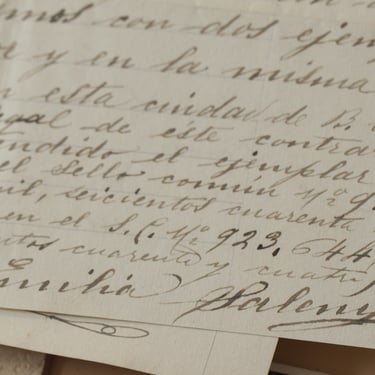 mos con dos ejem
y en la misma
n esta ciudad de B.
gal de este contra
tendido el ejemplar
el Sello común Nº 9
mil, seicientos cuarenta
en el S. C. Nº 923,644
entos cuarenta y cuatro
Emilia